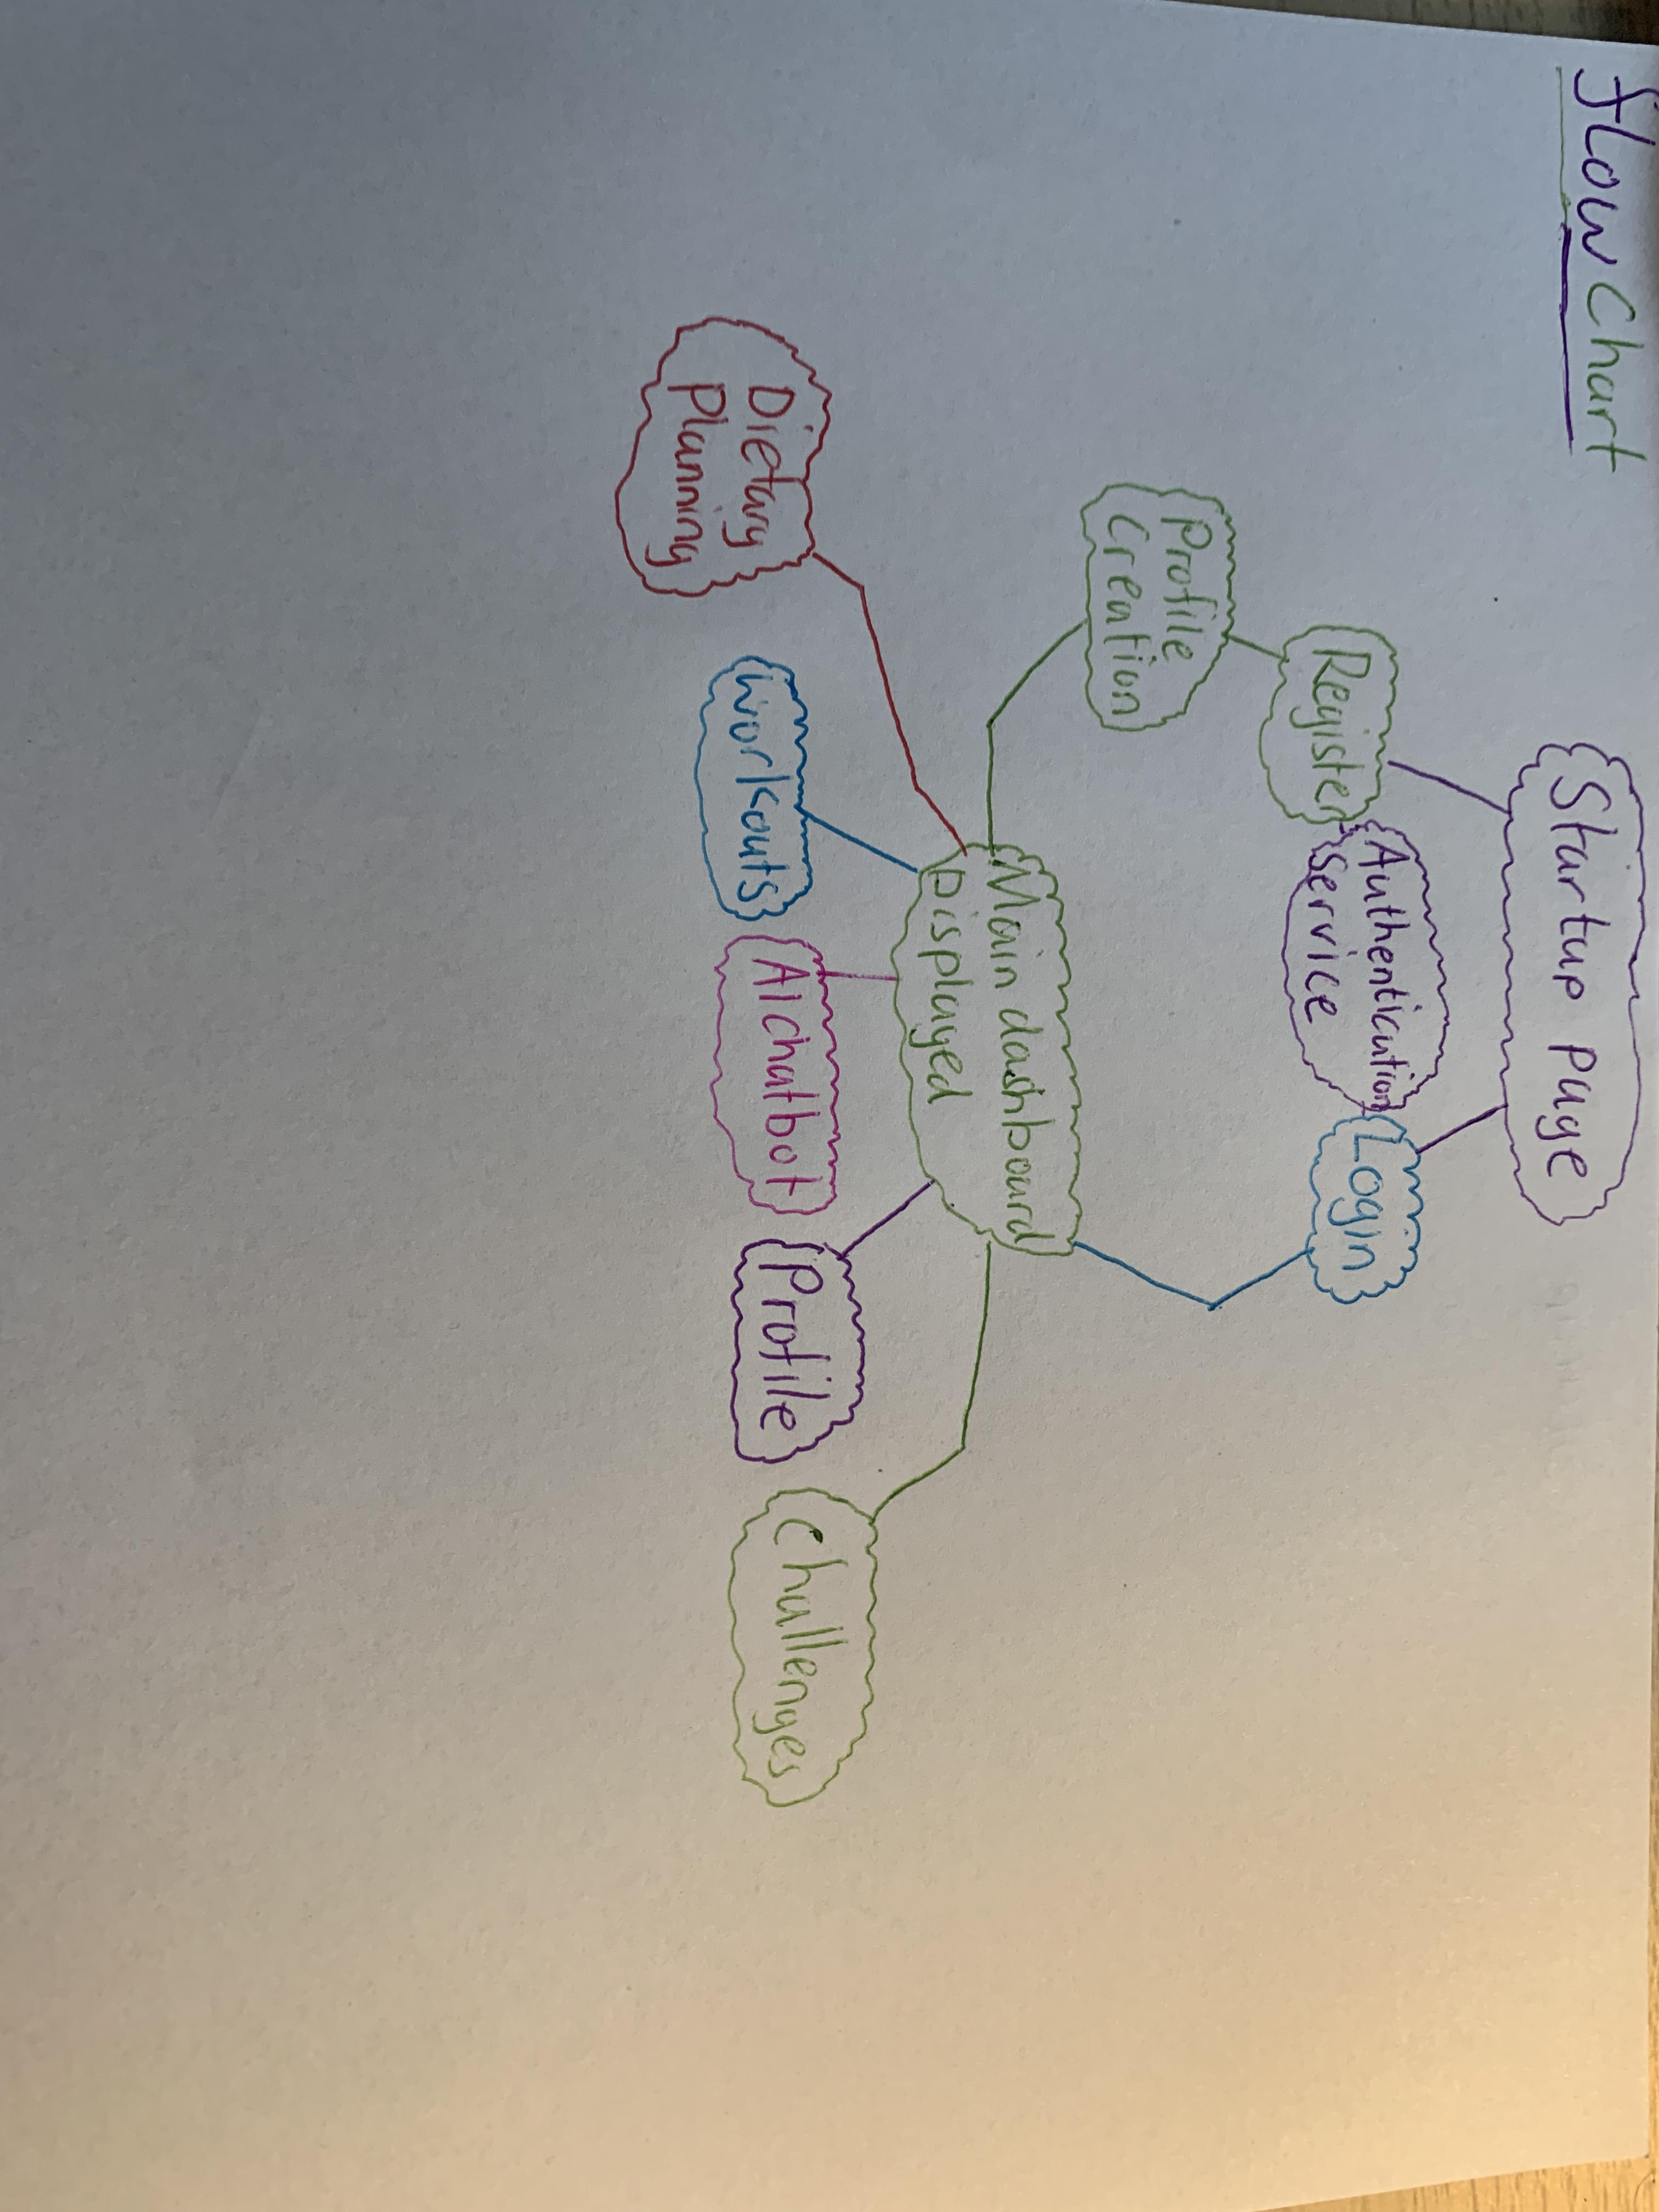 flow chart
Startup page
Register
Authentication
service
Login
Profile
Creation
Main dashboard
Displayed
Dietary
Planning
Workouts
AI chatbot
Profile
Challenges